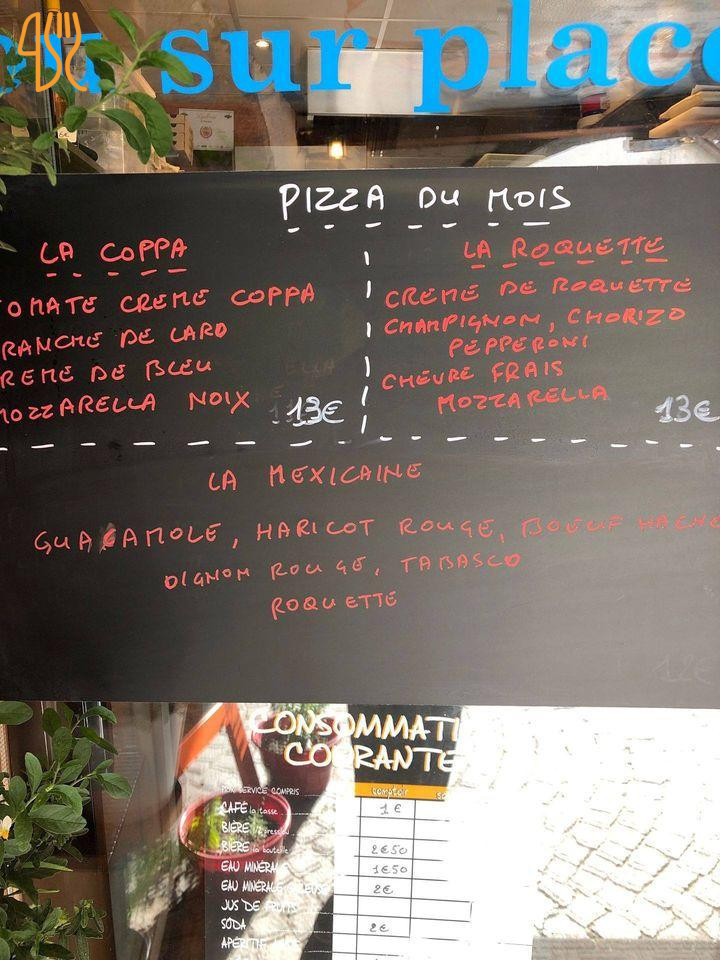 sur place
PIZZA DU MOIS
LA COPPA
TOMATE CREME COPPA
TRANCHE DE LARD
CREME DE BLEU
MOZZARELLA NOIX 13€
LA ROQUETTE
CREME DE ROQUETTE
CHAMPIGNON, CHORIZO
PEPPERONI
CHEVRE FRAIS
MOZZARELLA
13€
LA MEXICAINE
GUACAMOLE, HARICOT ROUGE, BOEUF HACHE
OIGNON ROUGE, TABASCO
ROQUETTE
12€
CONSOMMATI
COURANTE
SERVICE COMPRIS comptoir
CAFÉ la tasse 1€
BIÈRE
BIÈRE la bouteille 2€50
EAU MINÉRALE 1€50
EAU MINÉRALE 2€
JUS DE FRUITS
SODA 2€
APÉRITIF